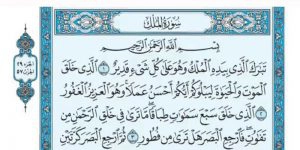 سُورَةُ الْمُلْكِ
بِسْمِ اللَّهِ الرَّحْمَٰنِ الرَّحِيمِ
تَبَارَكَ الَّذِي بِيَدِهِ الْمُلْكُ وَهُوَ عَلَىٰ كُلِّ شَيْءٍ قَدِيرٌ ١ الَّذِي خَلَقَ
الْمَوْتَ وَالْحَيَاةَ لِيَبْلُوَكُمْ أَيُّكُمْ أَحْسَنُ عَمَلًا وَهُوَ الْعَزِيزُ الْغَفُورُ
٢ الَّذِي خَلَقَ سَبْعَ سَمَاوَاتٍ طِبَاقًا مَّا تَرَىٰ فِي خَلْقِ الرَّحْمَٰنِ مِن
تَفَاوُتٍ فَارْجِعِ الْبَصَرَ هَلْ تَرَىٰ مِن فُطُورٍ ٣ ثُمَّ ارْجِعِ الْبَصَرَ كَرَّتَيْنِ
الجزء ٢٩
الحزب ٥٧